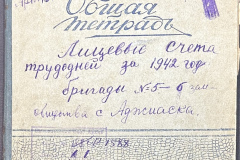 Общая
тетрадь
Лицевые счета
трудодней за 1942 год
бригады №5-6 
общества с Аджиаска.